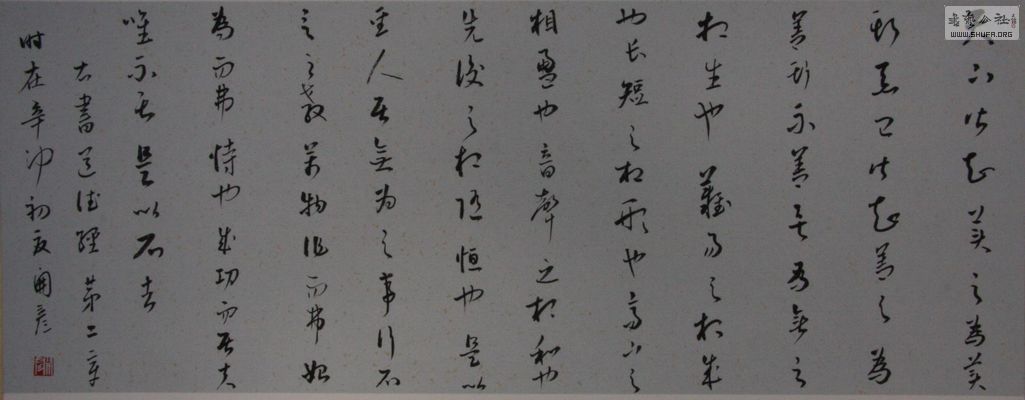 天下皆知美之為美
斯惡已皆知善之為
善斯不善矣有無之
相生也難易之相成
也長短之相形也高下之
相盈也音聲之相和也
先後之相隨恒也是以
聖人居無為之事行不
言之教萬物作而弗始
為而弗恃也成功而居夫
唯不居是以不去
右書道德經第二章
时在辛卯初夏
書藝公社
WWW.SHUFA.ORG